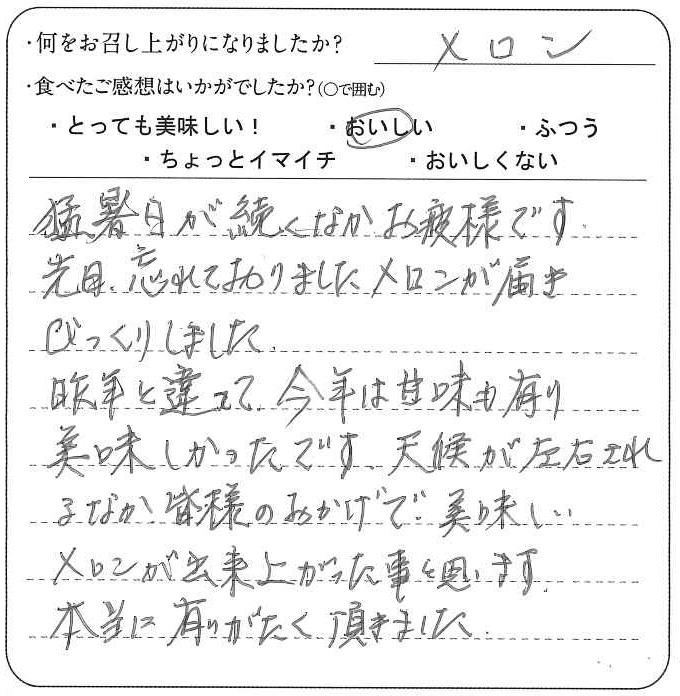 ・何をお召し上がりになりましたか? メロン
・食べたご感想はいかがでしたか?(○で囲む)
・とっても美味しい! ・おいしい ・ふつう
・ちょっとイマイチ ・おいしくない
猛暑日が続くなかお疲様です.
先日、忘れておりましたメロンが届き
びっくりしました.
昨年と違って、今年は甘味も有り
美味しかったです、天候が左右され
るなか皆様のおかげで美味しい
メロンが出来上がった事と思います.
本当に有りがたく頂きました.